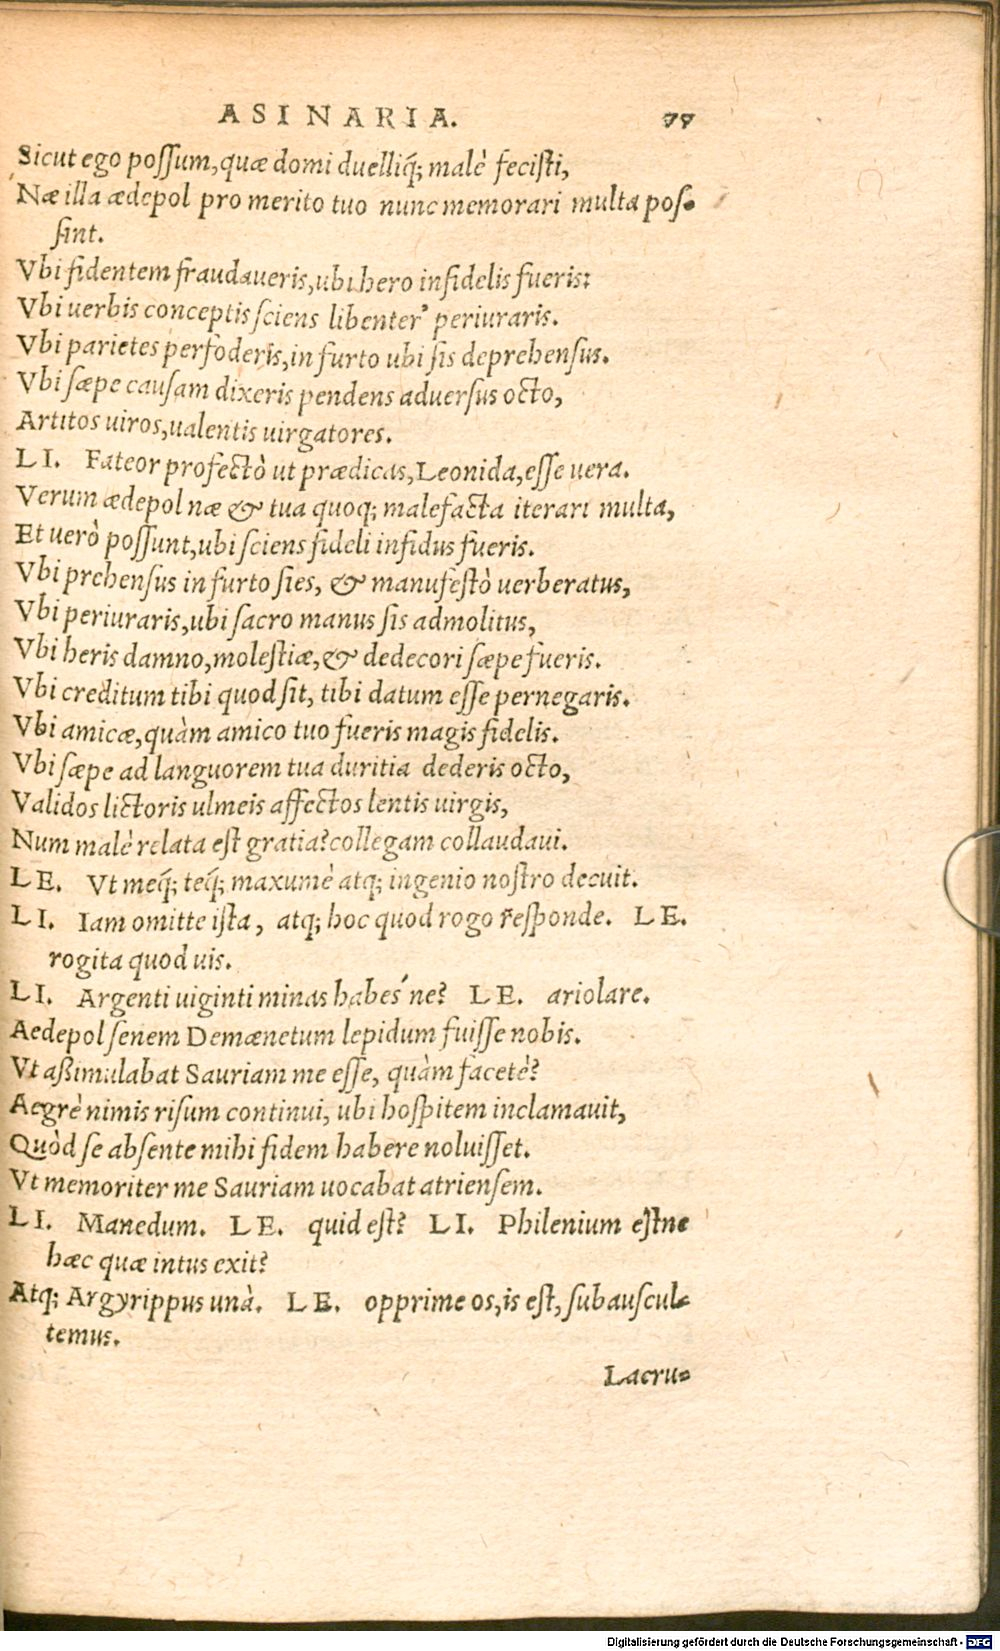 ASINARIA. 77
Sicut ego possum, quæ domi duelliq́; malè fecisti,
Næ illa ædepol pro merito tuo nunc memorari multa pos-
sint.
Vbi fidentem fraudaueris, ubi hero infidelis fueris:
Vbi uerbis conceptis sciens libenter' periuraris.
Vbi parietes perfoderis, in furto ubi sis deprehensus.
Vbi sæpe causam dixeris pendens aduersus octo,
Artitos uiros, ualentis uirgatores.
LI. Fateor profectò ut prædicas, Leonida, esse uera.
Verum ædepol næ & tua quoq; malefacta iterari multa,
Et uerò possunt, ubi sciens fideli infidus fueris.
Vbi prehensus in furto sies, & manufestò uerberatus,
Vbi periuraris, ubi sacro manus sis admolitus,
Vbi heris damno, molestiæ, & dedecori sæpe fueris.
Vbi creditum tibi quod sit, tibi datum esse pernegaris.
Vbi amicæ, quàm amico tuo fueris magis fidelis.
Vbi sæpe ad languorem tua duritia dederis octo,
Validos lictoris ulmeis affectos lentis uirgis,
Num malè relata est gratia? collegam collaudaui.
LE. Vt meq́; teq́; maxumè atq; ingenio nostro decuit.
LI. Iam omitte ista, atq; hoc quod rogo responde. LE.
rogita quod uis.
LI. Argenti uiginti minas habes'ne? LE. ariolare.
Aedepol senem Demænetum lepidum fuisse nobis.
Vt aßimulabat Sauriam me esse, quàm facetè?
Aegrè nimis risum continui, ubi hospitem inclamauit,
Quòd se absente mihi fidem habere noluisset.
Vt memoriter me Sauriam uocabat atriensem.
LI. Manedum. LE. quid est? LI. Philenium estne
hæc quæ intus exit?
Atq; Argyrippus unà. LE. opprime os, is est, subauscul-
temus.
Lacru-
Digitalisierung gefördert durch die Deutsche Forschungsgemeinschaft - DFG